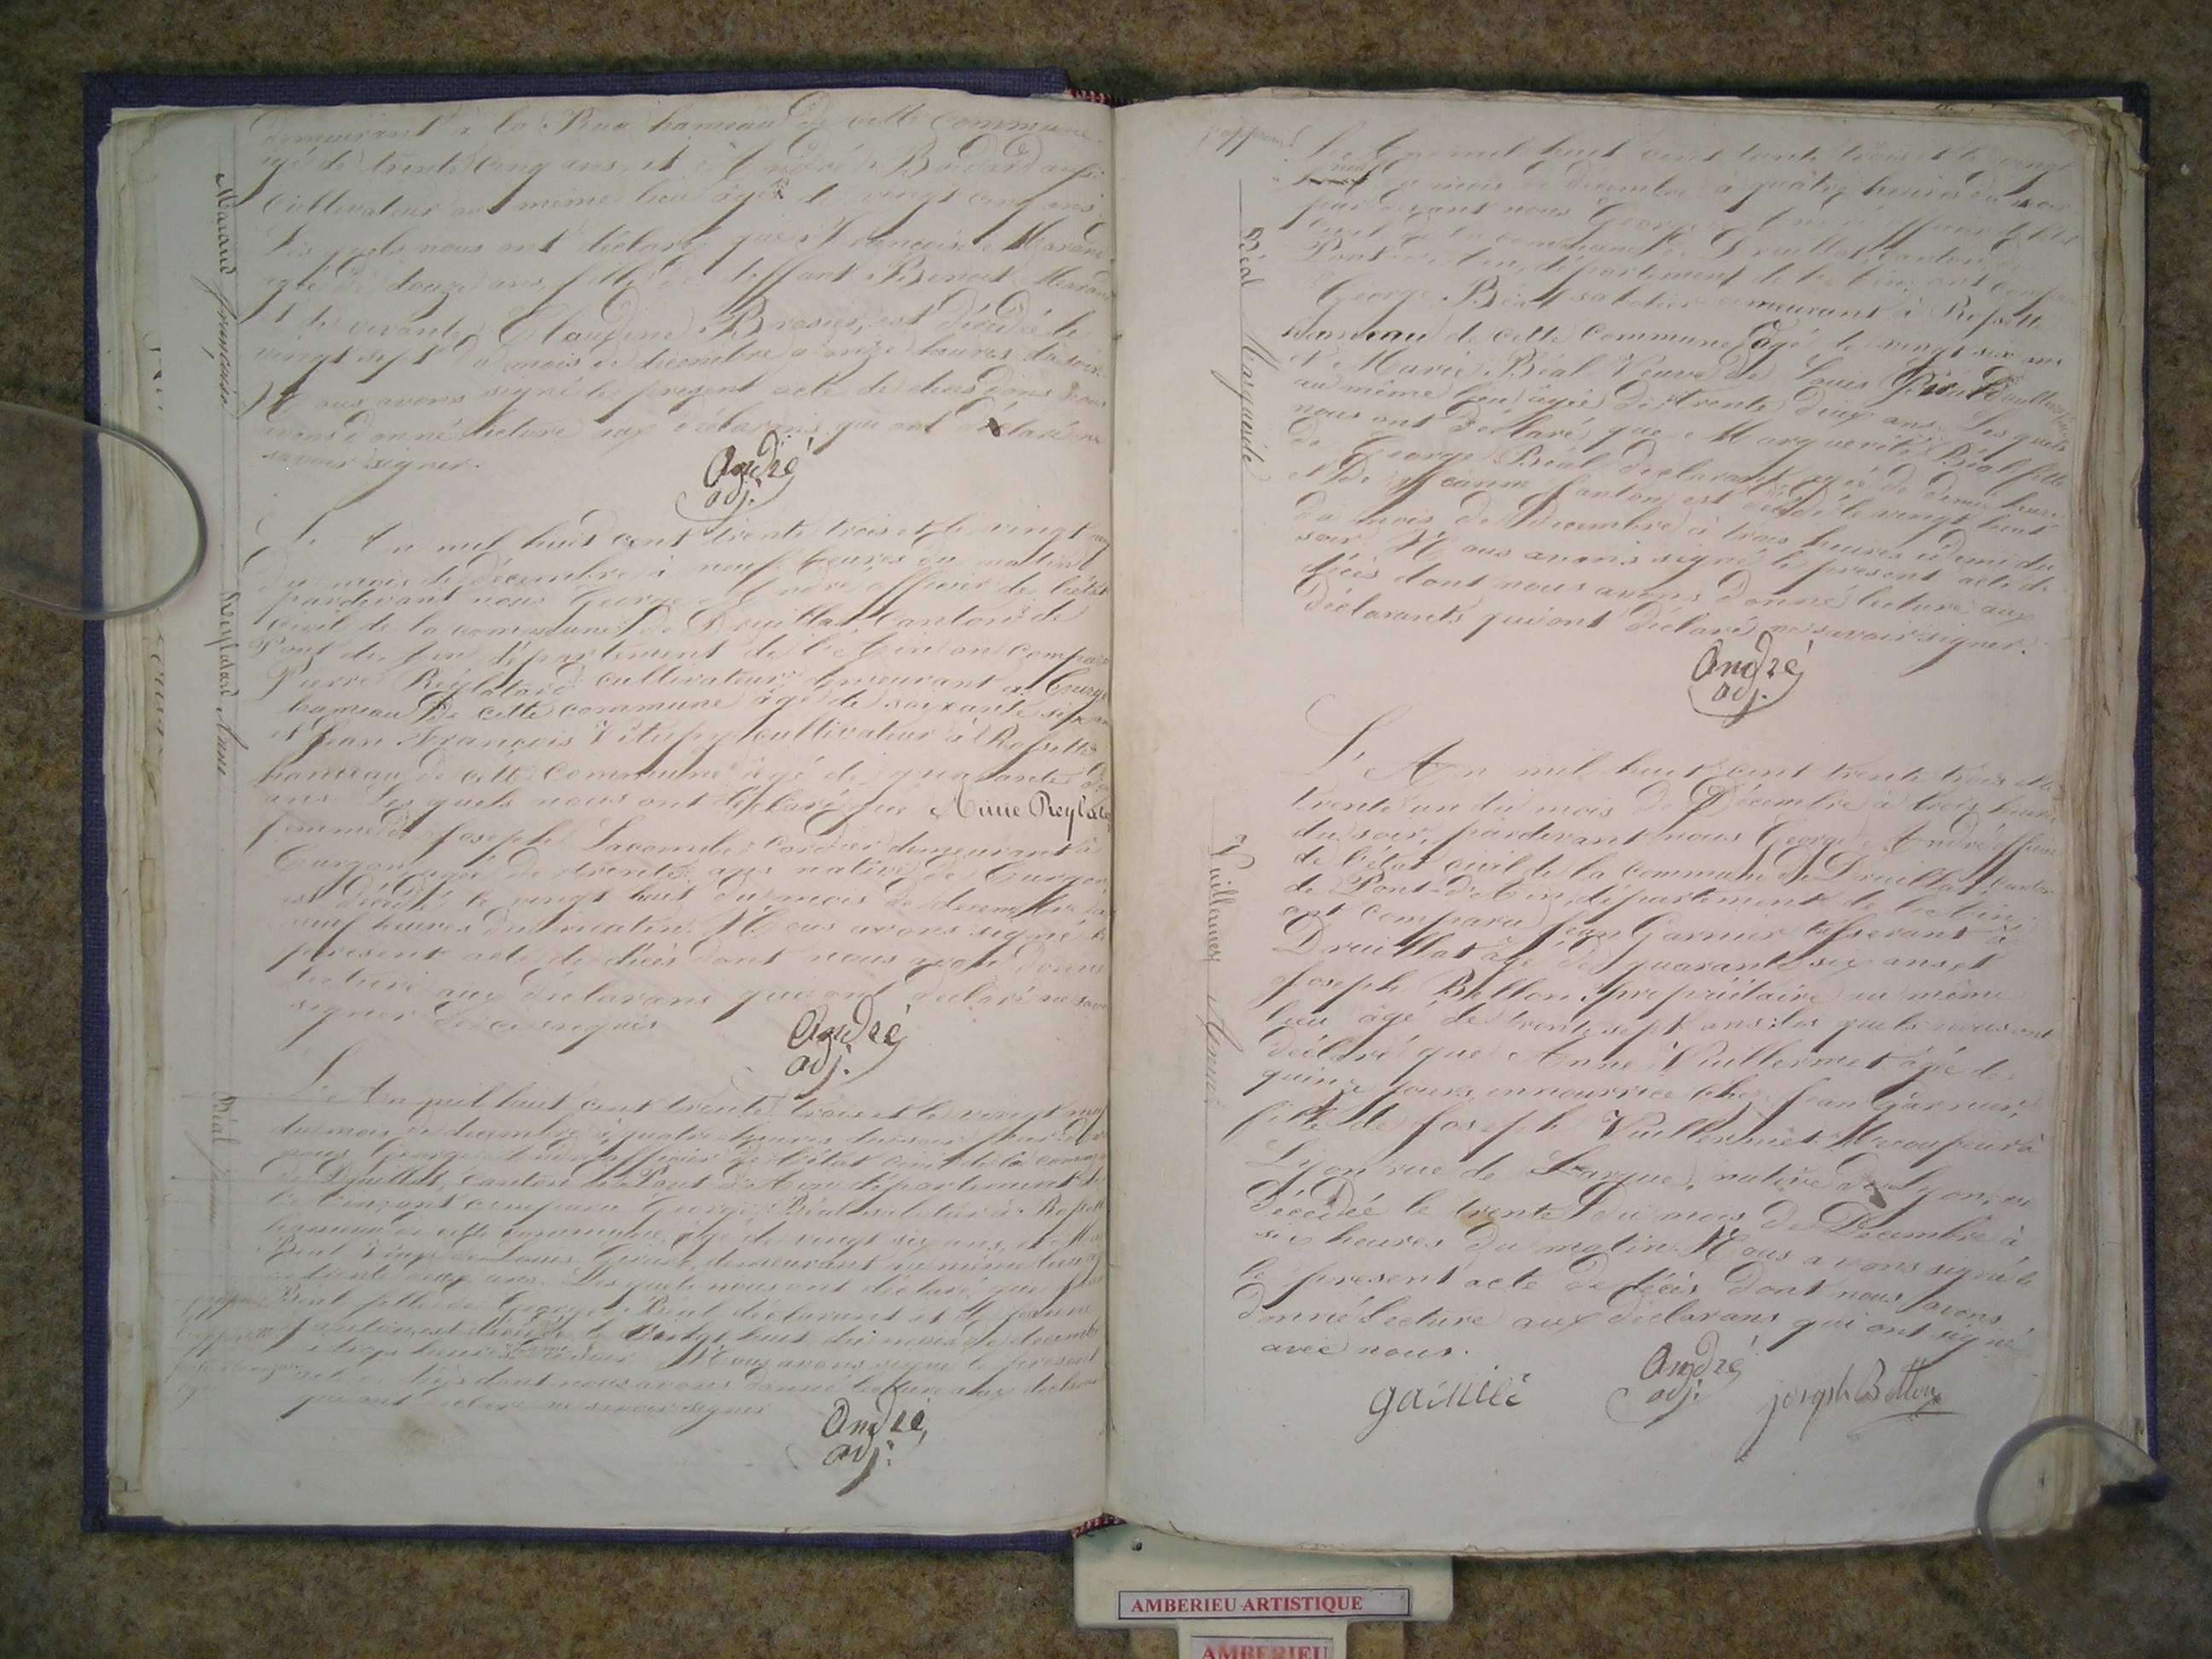 demeurant à la Rua hameau de cette commune
agé de trente cinq ans et André Buidard aussi
Cultivateur au même lieu âgé de vingt cinq ans
Les quels nous ont déclaré que Françoise Marand
agé de douze ans, fille de deffunt Benoit Marand
et de vivante Claudine Brosier, est décédé le
vingt sept du mois de décembre à onze heures du soir.
Nous avons signé le present acte de deces dont nous
avons donné lecture aux déclarans qui ont déclaré ne
savoir signer.
André
adj.
Marand françoise
L'An mil huit cent trente trois et le vingt
du mois de décembre à neuf heures du matin
pardevant nous George André officier de l'état
civil de la commune de Druillat, canton de
Pont d'ain département de l'Ain, on comparu
Pierre Reylatard cultivateur demeurant à
hameau de cette commune âgé de soixante six
et Jean François cultivateur à Rossette
hameau de cette Commune âgé de quarante
ans. Les quels nous ont déclaré que Anne Reylata
femme de Joseph Lacombe cordier demeurant à
Turgon agée de trente ans native de Turgon
est décédé le vingt huit du mois de décembre à
neuf heures du matin. Nous avons signé le
présent acte de décès dont nous avons donné
lecture aux déclarans qui ont déclaré ne savoir
signer de ce enquis
André
adj.
Reylatard Anne
L'An mil huit cent trente trois et le vingt neuf
du mois de decembre à quatre heures du soir
nous George André officier de l'état civil de la
de Druillat, canton de Pont d'Ain département de
l'Ain, ont comparu George Béal sabotier à Rossette
hameau de cette commune, âgé de vingt six ans, et
Béal Veuve de Louis demeurant au même lieu
de trente deux ans. Les quels nous ont déclaré que
Béal fille de George Béal déclarant et de Jeanne
Janton, est décédé le Vingt huit du mois de decembre
à trois heures du soir. Nous avons signé le present
acte de décès dont nous avons donné lecture aux
qui ont déclaré ne savoir signer
André
adj.
Béal
L'An mil huit cent trente trois et le vingt
neuf du mois de decembre à quatre heures du soir
par devant nous George André officier de l'état
civil de la commune de Druillat, canton de
Pont-d'Ain, département de l'Ain, ont comparu
George Béal sabotier demeurant à Rossette
hameau de cette Commune âgé de vingt six ans
et Marie Béal Veuve de Louis
au même lieu âgée de trente deux ans. Les quels
nous ont déclaré que Marguerite Béal fille
de George Béal declarant agée de demi heure
et de Jeanne Janton, est décédé le vingt huit
du mois de Décembre à trois heures et demi du
soir. Nous avons signé le présent acte de
décès dont nous avons donné lecture aux
déclarants qui ont déclaré ne savoir signer.
André
adj.
Béal Marguerite
L'An mil huit cent trente trois et le
trente un du mois de Décembre à trois heures
du soir, pardevant nous George André officier
de l'état civil de la commune de Druillat, canton
de Pont-d'Ain, département de l'Ain,
ont comparu Jean Garnier à
Druillat âgé de quarante six ans, et
Joseph Bellon, propriétaire au même
lieu âgé de trente sept ans; les quels nous ont
déclaré que Anne Vuillermet âgé de
quinze jours, en nourrice chez Jean Garnier,
fille de Joseph Vuillermet à
Lyon rue de native de Lyon, est
décédée le trente du mois de Décembre à
six heures du matin. Nous avons signé le
le present acte de décès dont nous avons
donné lecture aux déclarans qui ont signé
avec nous.
André
adj.
Vuillermet Anne
AMBERIEU ARTISTIQUE
AMBERIEU